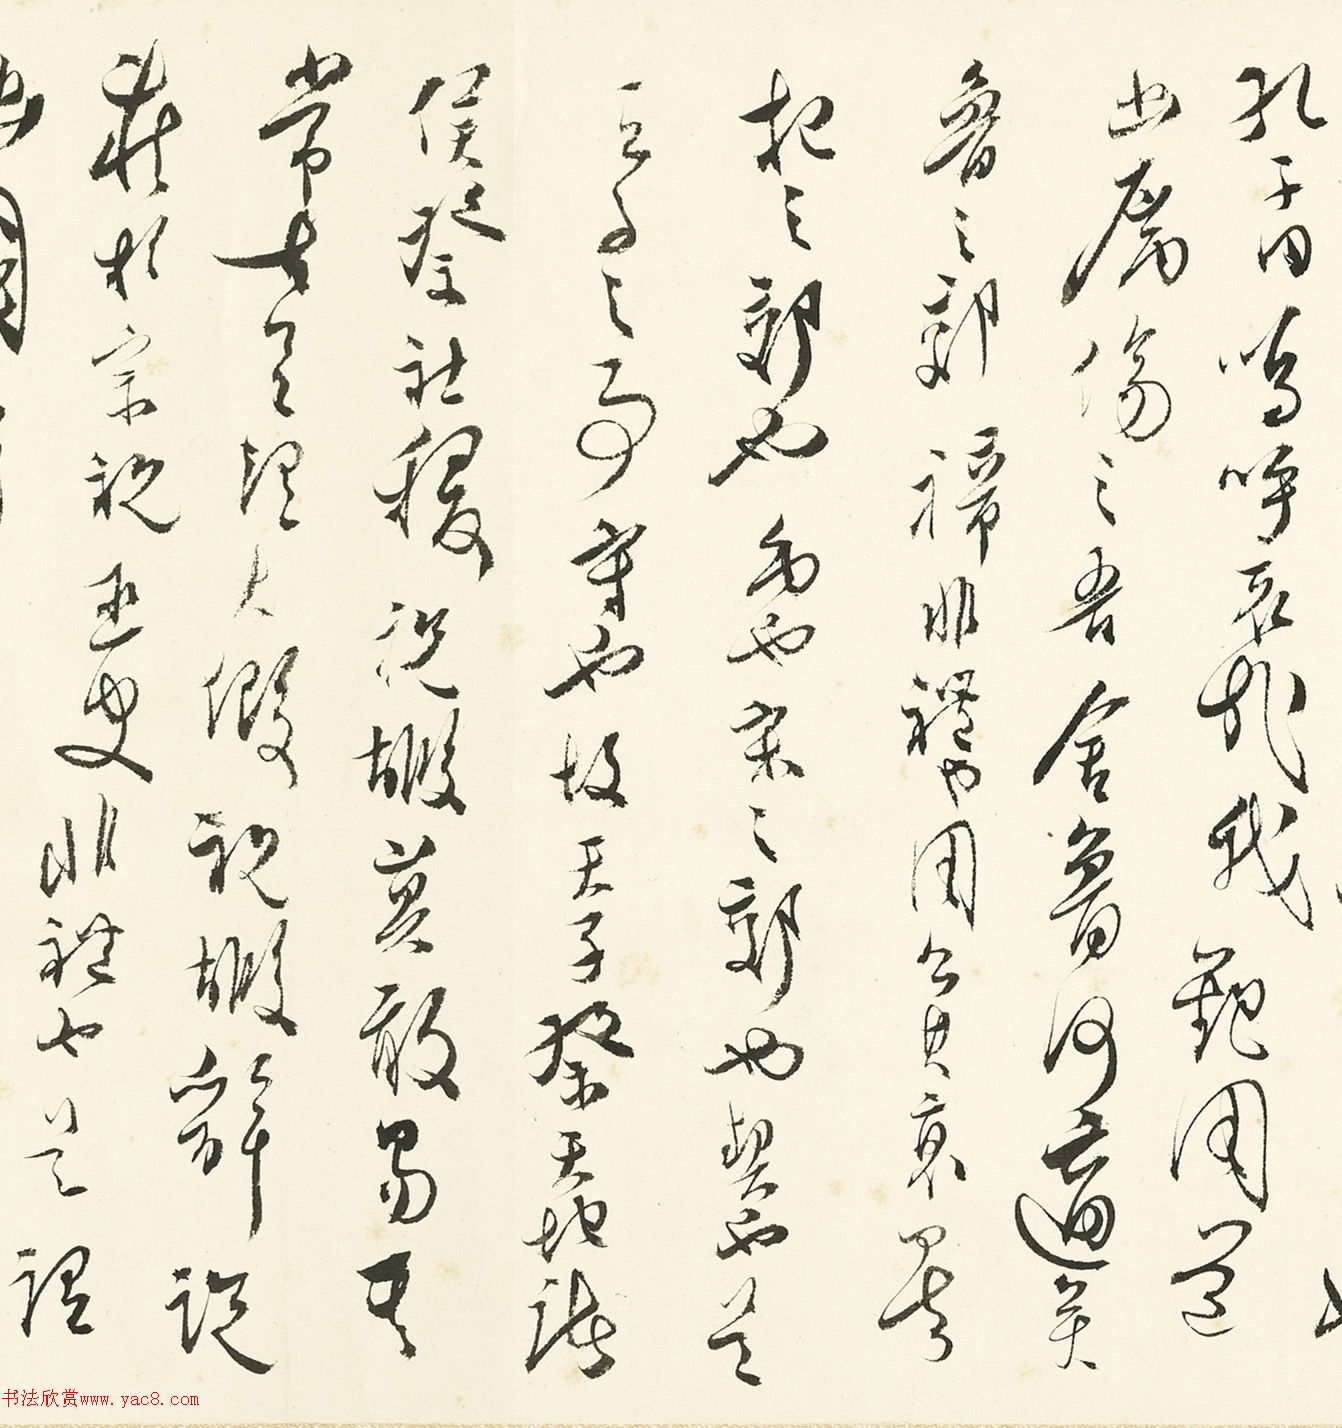 孔子曰嗚呼哀哉我觀周道
幽厲傷之吾舍魯何適矣
魯之郊禘非禮也周公其衰矣
杞之郊也禹也宋之郊也契也是
天子之事守也故天子祭天地諸
侯祭社稷祝嘏莫敢易其
常古是謂大假祝嘏辭說
藏於宗祝巫史非禮也是謂
幽國
书法欣赏www.yac8.com